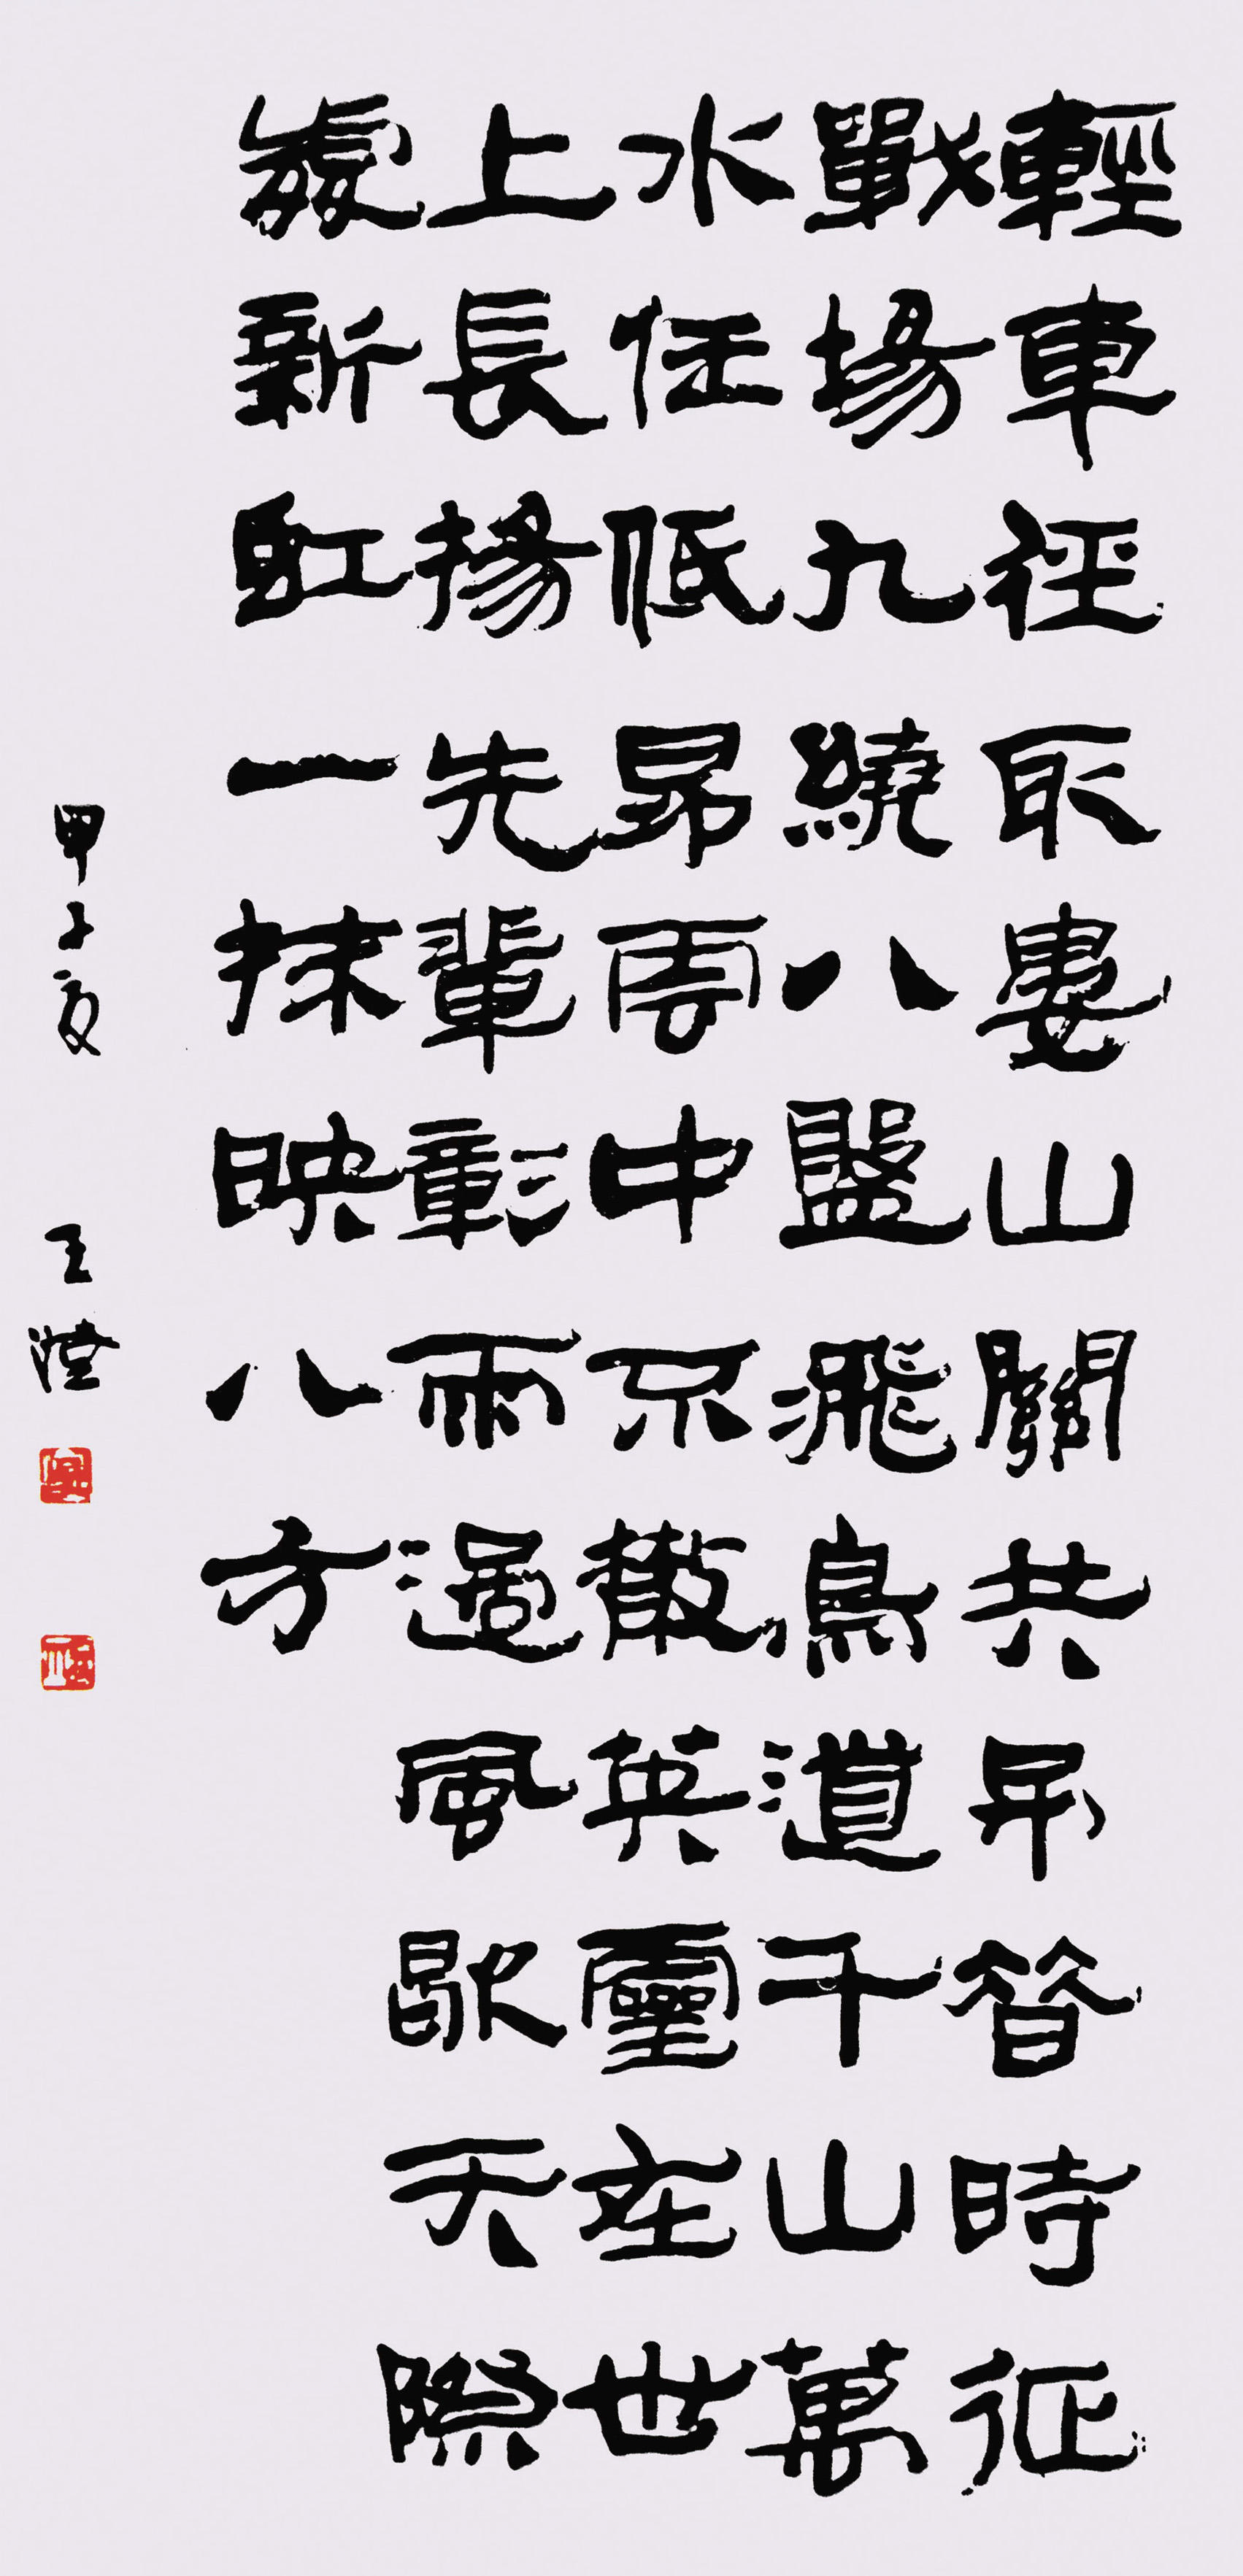 輕車徑取婁山關共弔昔時征
戰場九繞八盤飛鳥道千山萬
水任低昂雲中不散英靈在世
上長揚先輩彰雨過風歇天際
處新虹一抹映八方
甲子夏 王澄